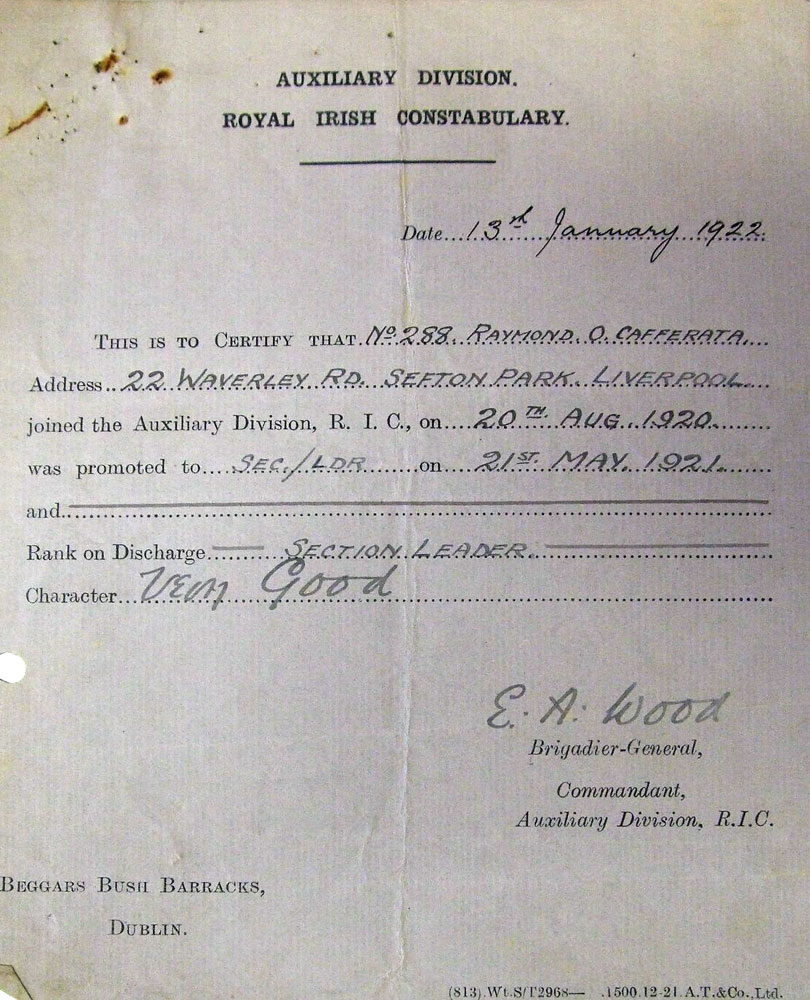 AUXILIARY DIVISION.
ROYAL IRISH CONSTABULARY.
Date 13th January 1922.
THIS IS TO CERTIFY THAT No. 288. RAYMOND. O. CAFFERATA.
Address 22 WAVERLEY RD. SEFTON PARK. LIVERPOOL
joined the Auxiliary Division, R. I. C., on 20TH AUG. 1920.
was promoted to SEC./LDR on 21ST MAY. 1921.
and
Rank on Discharge SECTION LEADER.
Character Very Good
E. A. Wood
Brigadier-General,
Commandant,
Auxiliary Division, R.I.C.
BEGGARS BUSH BARRACKS,
DUBLIN.
(813).Wt.S/T2968— .1500.12-21.A.T.&Co.,Ltd.